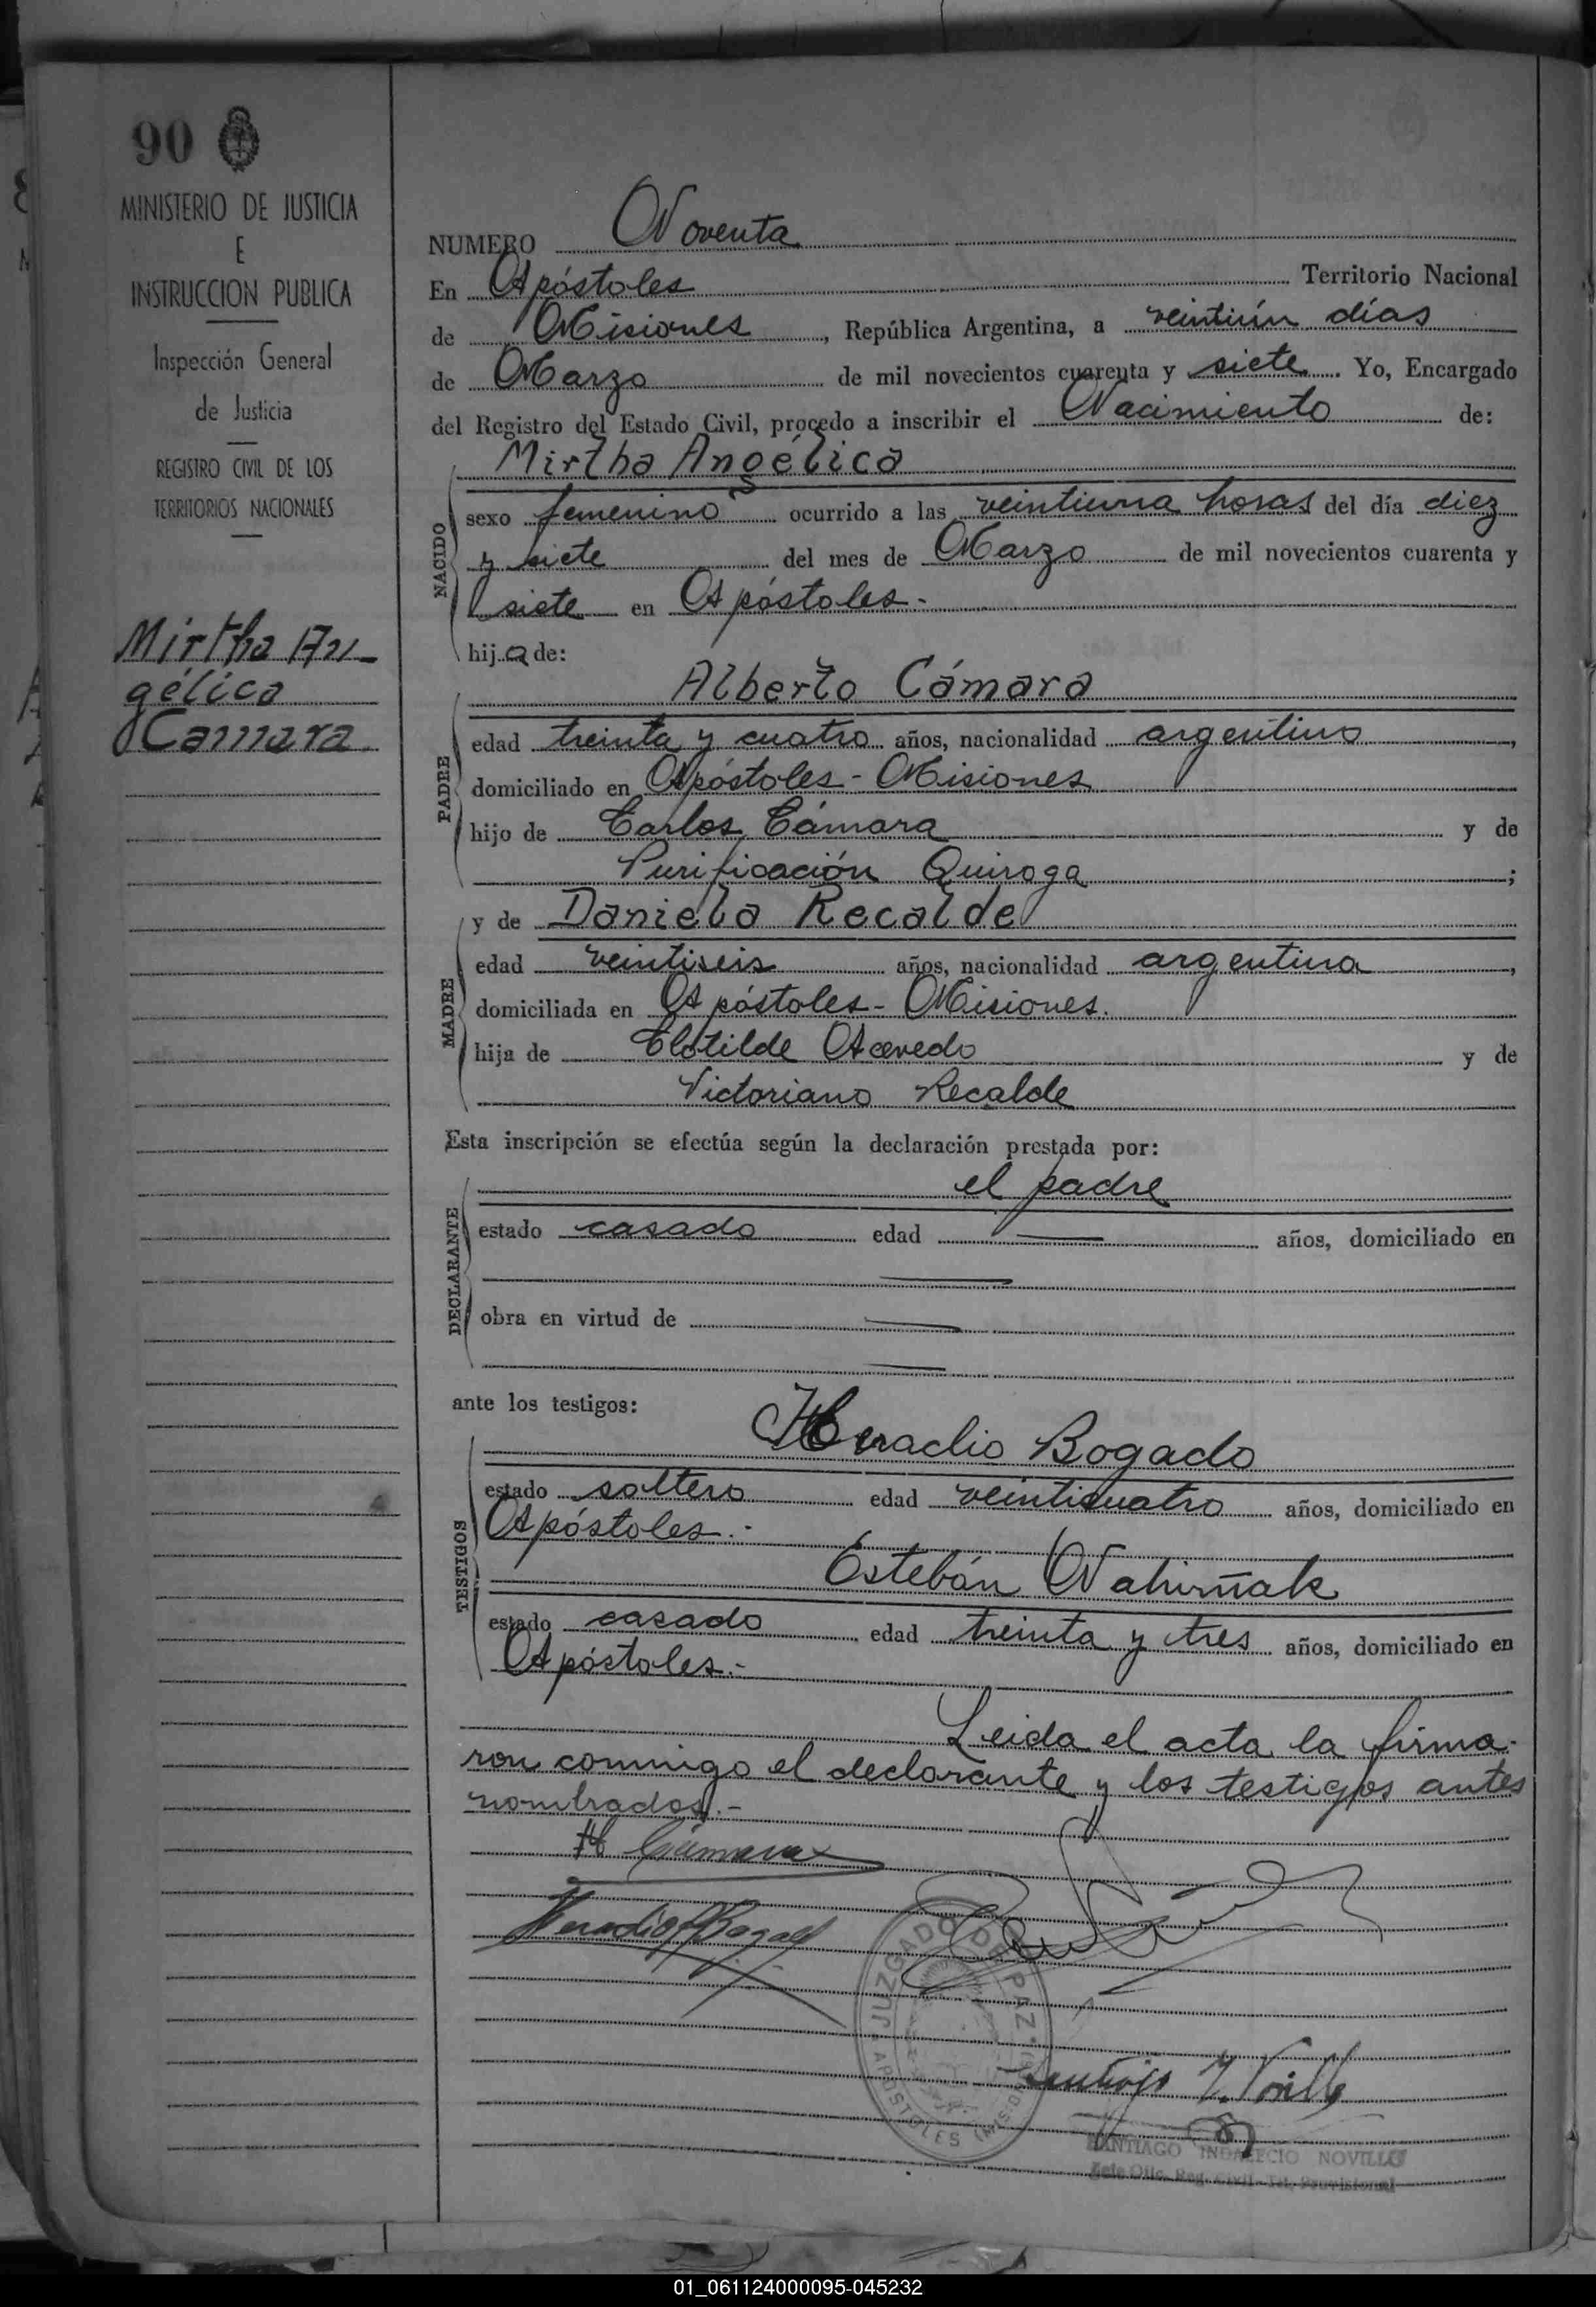 90
MINISTERIO DE JUSTICIA
E
INSTRUCCION PUBLICA
Inspección General
de Justicia
REGISTRO CIVIL DE LOS
TERRITORIOS NACIONALES
Mirtha An-
gélica
Camara
NUMERO Noventa
En Apóstoles Territorio Nacional
de Misiones, República Argentina, a veintiún días
de Marzo de mil novecientos cuarenta y siete. Yo, Encargado
del Registro del Estado Civil, procedo a inscribir el Nacimiento de:
Mirtha Angélica
NACIDO
sexo femenino ocurrido a las veintiuna horas del día diez
y siete del mes de Marzo de mil novecientos cuarenta y
siete en Apóstoles.-
hija de:
Alberto Cámara
PADRE
edad treinta y cuatro años, nacionalidad argentino,
domiciliado en Apóstoles - Misiones
hijo de Carlos Cámara y de
Purificación Quiroga;
y de Daniela Recalde
MADRE
edad veintiseis años, nacionalidad argentina,
domiciliada en Apóstoles - Misiones.
hija de Clotilde Acevedo y de
Victoriano Recalde
Esta inscripción se efectúa según la declaración prestada por:
el padre
DECLARANTE
estado casado edad — años, domiciliado en
—
obra en virtud de —
—
ante los testigos:
Heraclio Bogado
TESTIGOS
estado soltero edad veinticuatro años, domiciliado en
Apóstoles.-
Estebán Nahirñak
estado casado edad treinta y tres años, domiciliado en
Apóstoles.-
Leida el acta la firma-
ron conmigo el declarante y los testigos antes
nombrados.-
A Cámara
Heraclio Bogado
JUZGADO DE PAZ
APOSTOLES (MISIONES)
Santiago I. Novillo
SANTIAGO INDALECIO NOVILLO
Jefe Ofic. Reg. Civil - Tit. Provisional
01_061124000095-045232